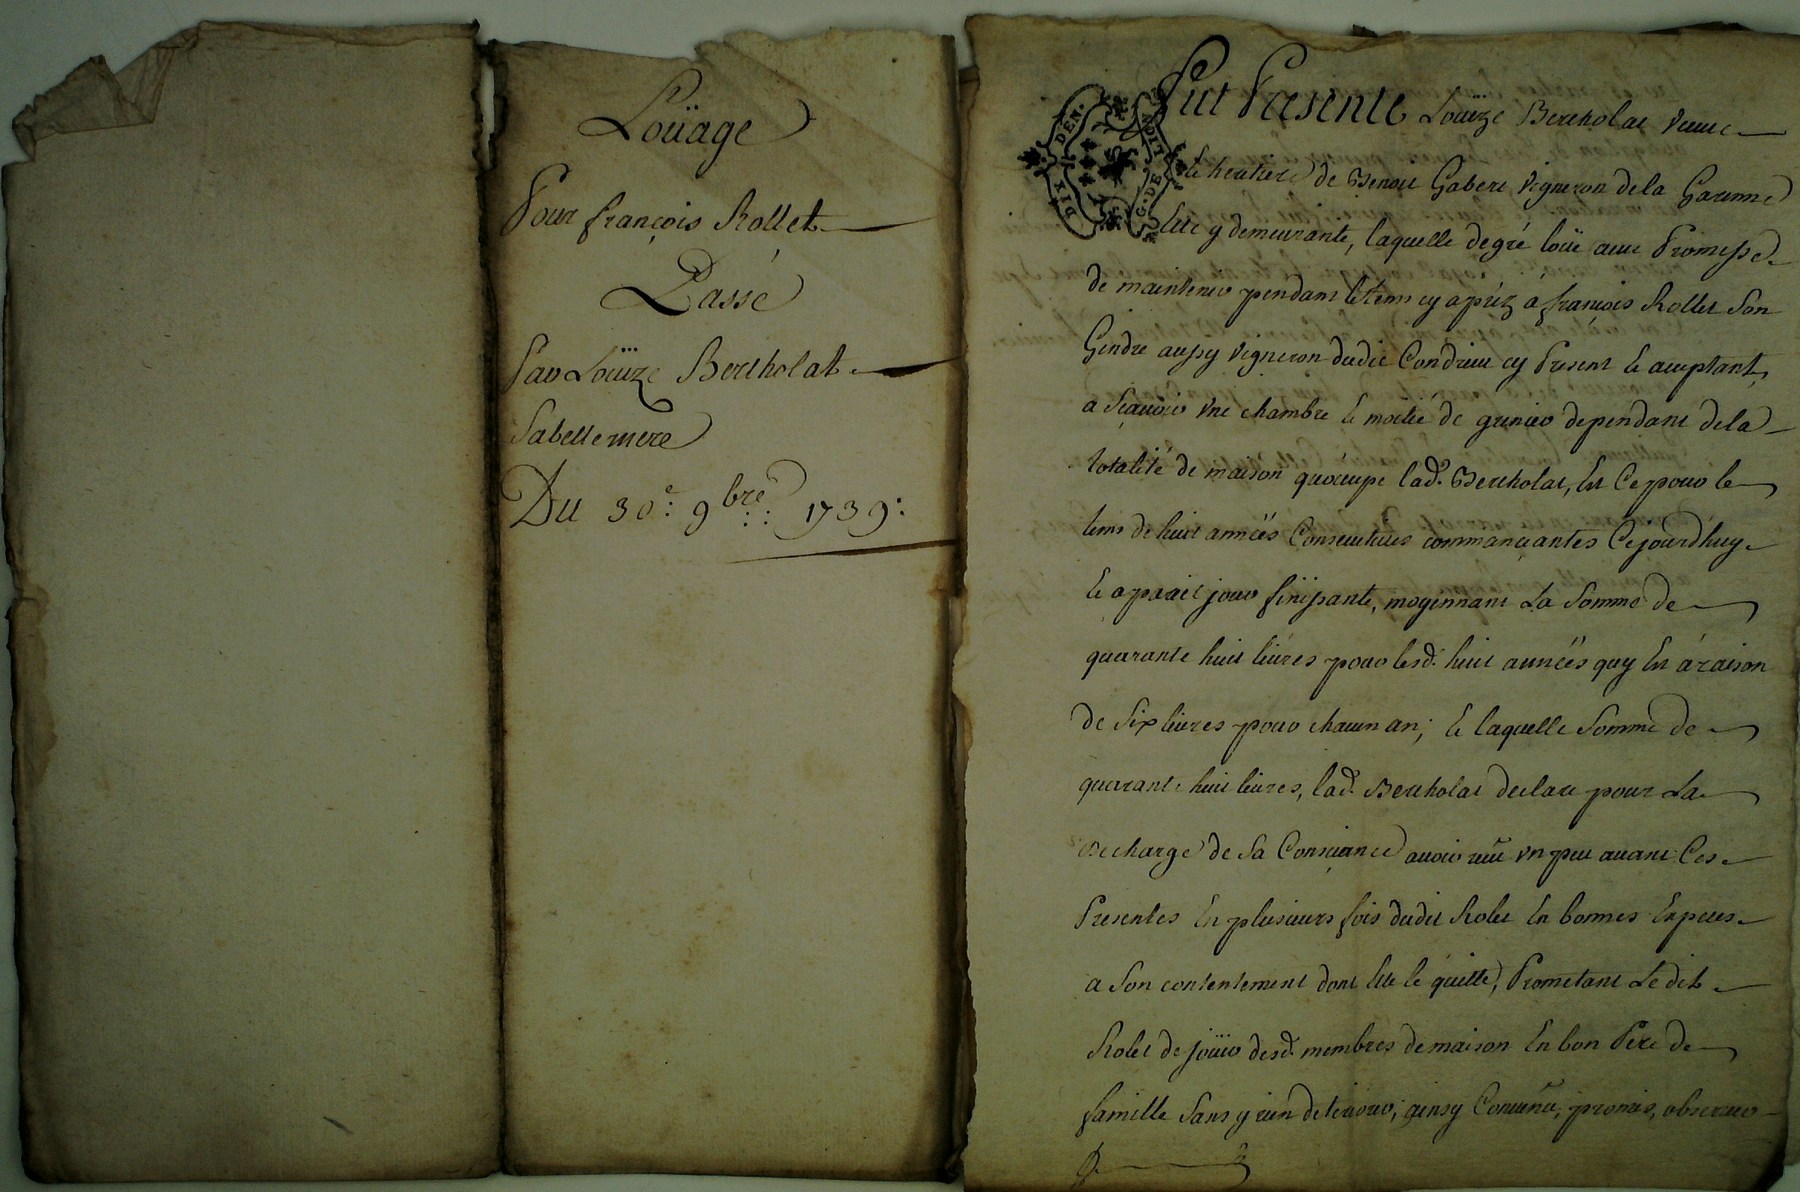 Loüage
Pour françois Rollet
Passé
Par Loüize Bertholat
Sa belle mere
Du 30e: 9bre: 1739:
DIX DEN.
G. DE LYON
Fut Presente Loüize Bertholat veuve
& heritiere de Benoit Gabert vigneron de la Garenne
Elle y demeurante, laquelle de gré loüe avec Promesse
de maintenir pendant le tems cy aprèz à françois Rollet Son
Gendre aussy vigneron dudit Condrieu cy Present & acceptant,
a Sçavoir vne chambre & moitié de grenier dependant de la
totalité de maison qu'occupe lad. Bertholat, Et Ce pour le
tems de huit années Consecutives commançantes Cejourd'huy
& a pareil jour finissante, moyennant La Somme de
quarante huit livres pour lesd. huit années quy Est à raison
de Six livres pour chacun an; & laquelle Somme de
quarante huit livres, lad. Bertholat declare pour La
decharge de Sa Consciance avoir reçu vn peu avant Ces
Presentes En plusieurs fois dudit Rolet En bonnes Especes
a Son contentement dont Elle le quitte, Prometant Le dit
Rolet de joüir desd. membres de maison En bon Pere de
famille Sans y rien deteriorer; ainsy Convenu, promis, observer